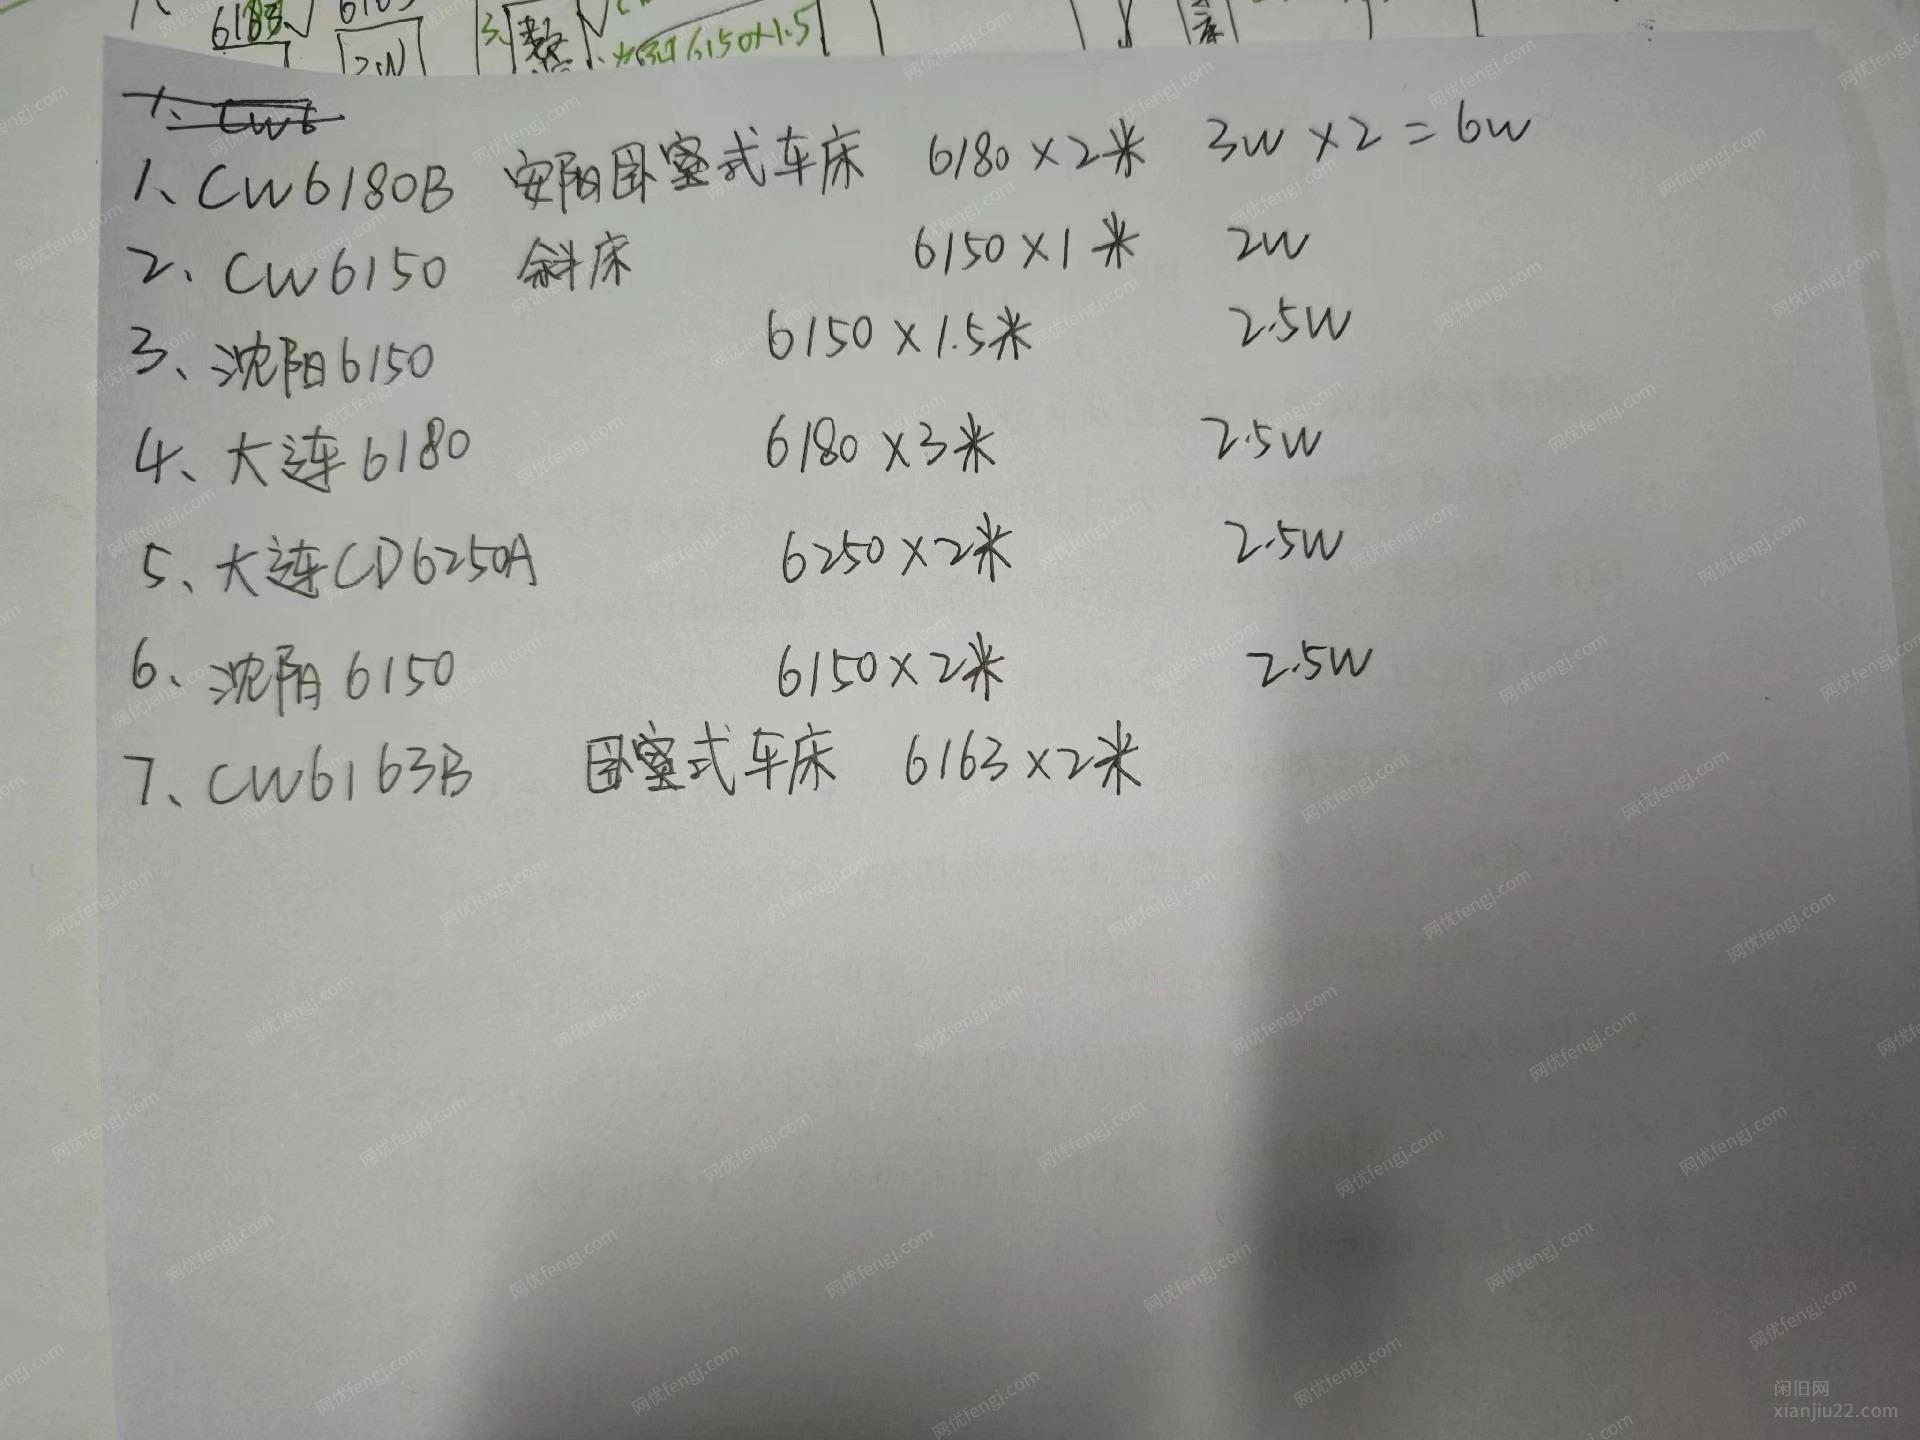 6183
6163
2W
3.
数
6150×1.5
1、CW6
1、CW6180B 安阳卧室式车床 6180×2米 3W×2=6W
2、CW6150 斜床 6150×1米 2W
3、沈阳6150 6150×1.5米 2.5W
4、大连6180 6180×3米 2.5W
5、大连CD6250A 6250×2米 2.5W
6、沈阳6150 6150×2米 2.5W
7、CW6163B 卧室式车床 6163×2米
网优fengj.com
闲旧网
xianjiu22.com